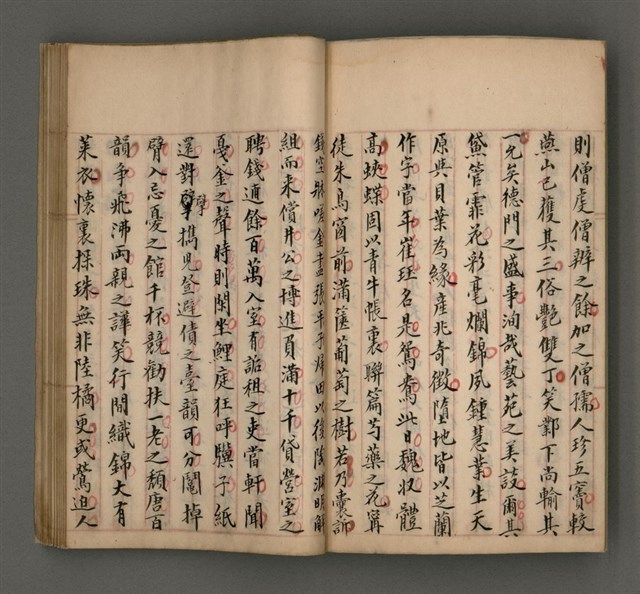 則僧虔僧辨之餘加之僧孺人珍五竇較
燕山已獲其三俗艷雙丁笑鄴下尚輸其
一允矣德門之盛事洵哉藝苑之美談爾其
黛管霏花彩毫爛錦夙鍾慧業生天
原與貝葉為緣產兆奇徵墮地皆以芝蘭
作字當年崔珏名是鴛鴦此日魏收體
高蛺蝶固以青牛帳裏聯篇芍藥之花寗
徒朱鳥窗前滿篋葡萄之樹若乃囊
組而來償井公之博進負滿十千貸營室之
聘錢逋餘百萬入室有詬租之吏當軒聞
戞釜之聲時則閑坐鯉庭狂呼驥子紙
還對擘攜兒登避債之臺韻可分鬮掉
臂入忘憂之館千杯競勸扶一老之頹唐百
韻爭飛沸兩親之譁笑行間織錦大有
萊衣懷裏探珠無非陸橘更或鶯迫人